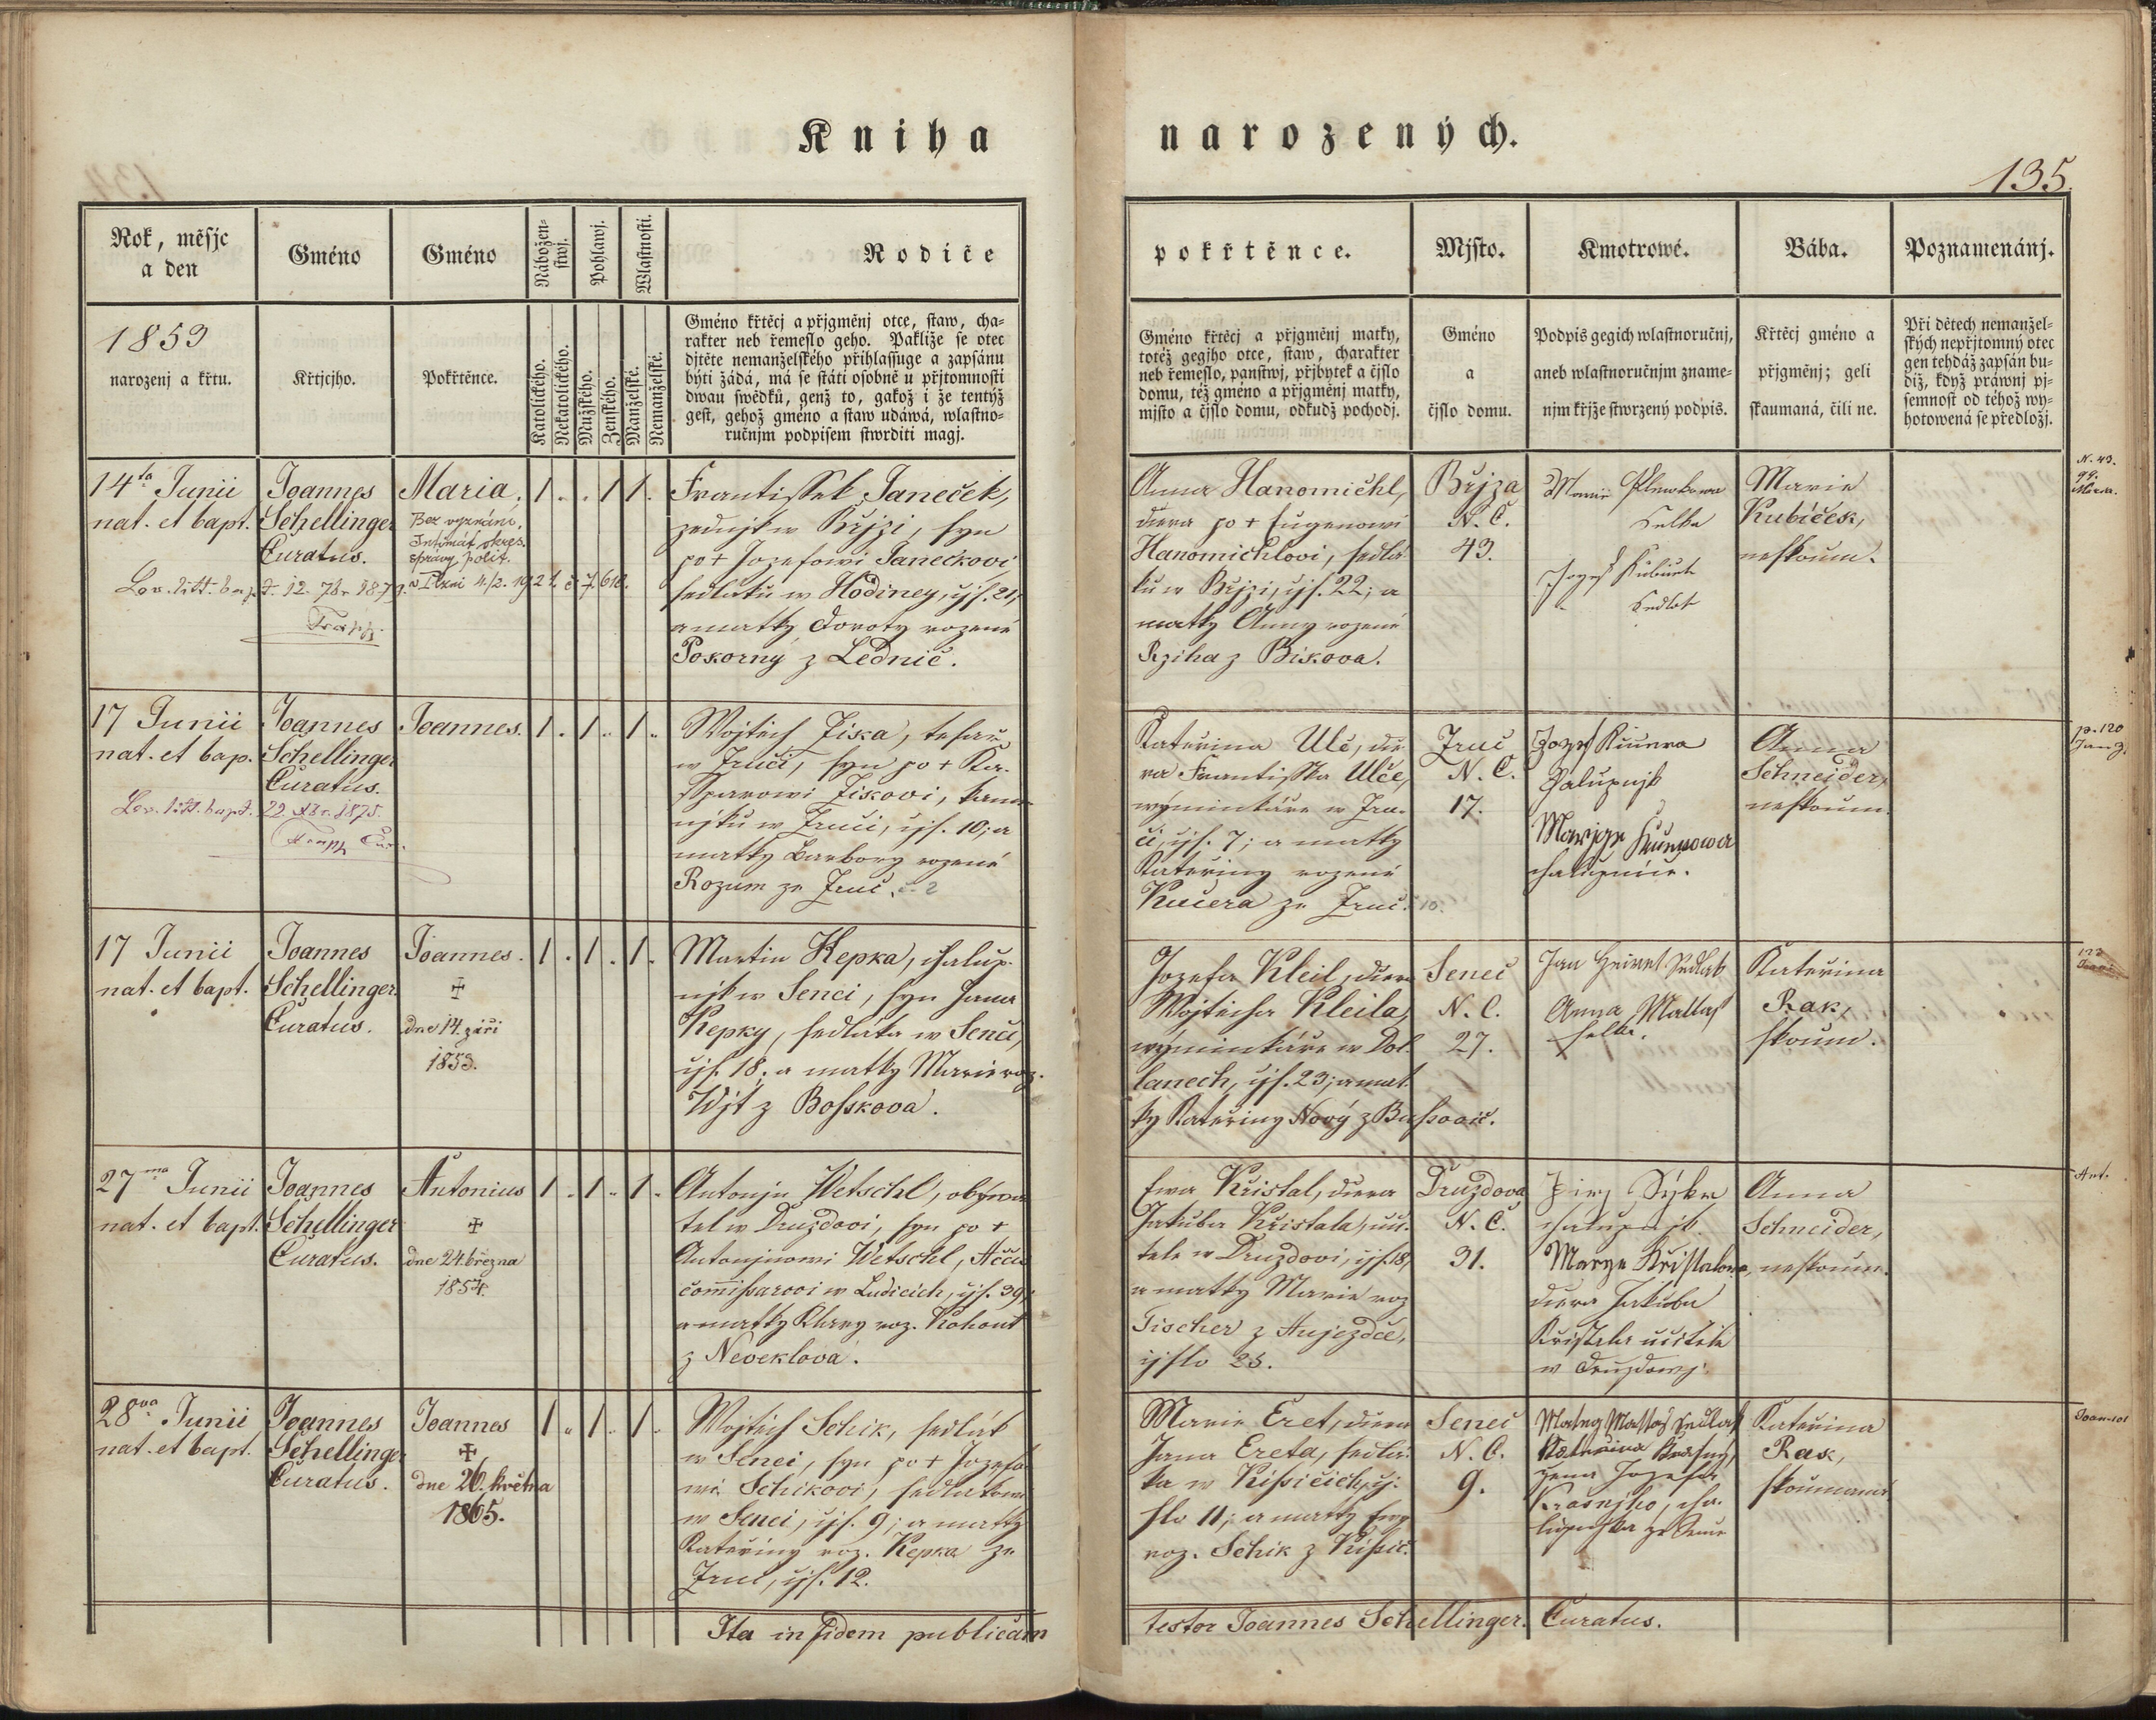 Kniha narozených.
135.
Rok, měsjc
a den
Gméno
Gméno
Nábožen-
stwj.
Pohlawj.
Wlastnosti.
Rodiče
pokřtěnce.
Mjsto.
Kmotrowé.
Bába.
Poznamenánj.
1859
narozenj a křtu.
Křtjcjho.
Pokřtěnce.
Katolického.
Nekatolického.
Mužského.
Ženského.
Manželské.
Nemanželské.
Gméno křtěcj a přjgměnj otce, staw, cha-
rakter neb řemeslo geho. Pakliže se otec
djtěte nemanželského přihlassuge a zapsánu
býti žádá, má se státi osobně u přjtomnosti
dwau swědků, genž to, gakož i že tentýž
gest, gehož gméno a staw udáwá, wlastno-
ručnjm podpisem stwrditi magj.
Gméno křtěcj a přjgměnj matky,
totéž gegjho otce, staw, charakter
neb řemeslo, panstwj, přjbytek a čjslo
domu, též gméno a přjgměnj matky,
mjsto a čjslo domu, odkudž pochodj.
Gméno
a
čjslo domu.
Podpis gegich wlastnoručnj,
aneb wlastnoručnjm zname-
njm křjže stwrzený podpis.
Křtěcj gméno a
přjgměnj; geli
skaumaná, čili ne.
Při dětech nemanžel-
ských nepřjtomný otec
gen tehdáž zapsán bu-
diž, když práwnj pj-
semnost od téhož wy-
hotowená se předložj.
14ta Junii
nat. et bapt.
Joannes
Schellinger
Curatus.
Maria.
Bez vyznání.
Intimát okres.
správy polit.
v Plzni 4/2. 1921. č. j. 618.
Lev. litt. bapt. 12. 7br. 1879.
1 . . 1 1 .
Frantissek Janeček,
zednjk w Břjzi, syn
po + Jozefowi Janečkovi
sedláku w Hodiney, čjs. 21,
a matky Doroty rozené
Pokorný z Lednic.
Anna Hanomichl,
dcera po + Eugenowi
Hanomichlovi, sedlá-
ku w Břjzi, čjs. 22; a
matky Anny rozené
Rziha z Biskova.
Břjza
N. C.
43.
Selka
Sedlak
Marie
Kubiček,
neskoum.
N. 43.
99.
Maria.
17 Junii
nat. et bap.
Joannes
Schellinger
Curatus.
Joannes.
Lev. litt. bapt. 22. Xbr. 1875.
1 . 1 . 1 .
Wojtěch Ziska, tesař
w Zruči, syn po + Ka-
ssparowi Ziskovi, kame-
njku w Zruči, čjs. 10; a
matky Barbory rozené
Rozum ze Zruč. č. 2
Kateřina Ulč, dce-
ra Frantisska Ulče,
wýminkáře w Zru-
či, čjs. 7; a matky
Kateřiny rozené
Kučera ze Zruč. 10.
Zruč
N. C.
17.
Jozef
Chalupnjk
Marige
chalupnice.
Anna
Schneider,
neskoum.
p. 120
Jan Z.
17 Junii
nat. et bapt.
Joannes
Schellinger
Curatus.
Joannes.
✠
dne 14. září
1859.
1 . 1 . 1 .
Martin Kepka, chalup-
njk w Senci, syn Jana
Kepky, sedláka w Senci,
čjs. 18; a matky Marie roz.
Wjt z Bosskova.
Jozefa Kleil, dcera
Wojtěcha Kleila,
wýminkáře w Dol-
lanech, čjs. 23; a mat-
ky Kateřiny Nový z Bussovic.
Senec
N. C.
27.
Jan Sedlak
Anna Mattas
selka.
Kateřina
Rak,
skoum.
27ma Junii
nat. et bapt.
Joannes
Schellinger
Curatus.
Antonius
✠
dne 24. března
1857.
1 . 1 . 1 .
Antonjn Wetschl, obýwa-
tel w Druzdovi, syn po +
Antonjnowi Wetschl,
commissarovi w Ludicich, čjs. 39;
a matky Klary roz. Kohout
z Neveklova.
Ewa Křistal, dcera
Jakuba Křistala, uči-
tele w Druzdovi, čjs. 18,
a matky Marie roz.
Tischer z Aujezdce,
čjslo 25.
Druzdova
N. C.
31.
Jirj Sýkora
chalupnjk
Marye Křistalowa,
dcera Jakuba
Křistala učitele
w Druzdowj.
Anna
Schneider,
neskoum.
Ant.
28va Junii
nat. et bapt.
Joannes
Schellinger
Curatus.
Joannes
✠
dne 26. května
1865.
1 . 1 . 1 .
Wojtěch Schik, sedlák
w Senci, syn po + Jozefo-
wi Schikovi, sedlákowi
w Senci, čjs. 9; a matky
Kateřiny roz. Kepka ze
Zruč, čjs. 12.
Marie Eret, dcera
Jana Ereta, sedlá-
ka w Kissicich, čj-
slo 11; a matky Ewy
roz. Schik z Kissic.
Senec
N. C.
9.
Mateg Mattas Sedlak
Kateřina Krasny,
žena Jozefa
Krasnjho, cha-
lupnjka ze Sence
Kateřina
Rak,
skoumaná
Joannes
Ita in fidem publicam testor Joannes Schellinger. Curatus.